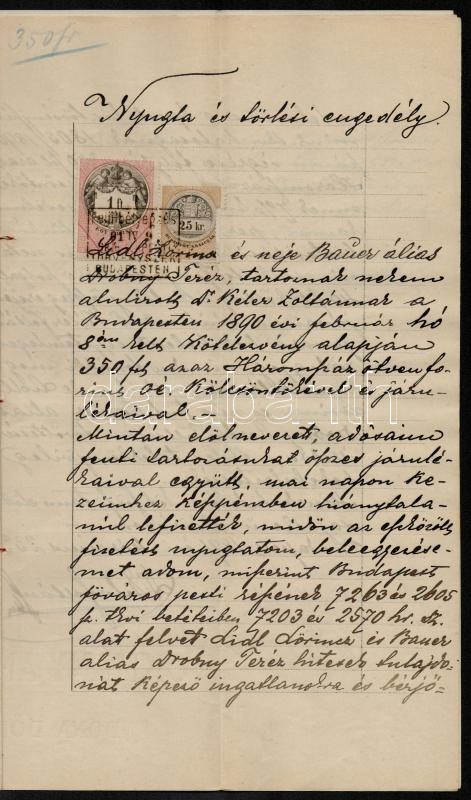 350 fr
Nyugta és törlési engedély.
1 ft.
91 IV 2
25 kr.
BUDAPESTEN
Lidl Lőrincz és neje Bauer álias
Drobny Teréz, tartoznak nekem
alulirott Dr Kéler Zoltánnak a
Budapesten 1890 évi február hó
8án kelt Kötelezvény alapján
350 ft, azaz Háromszáz ötven fo-
rint oé. Kölcsöntőkével és járu-
lékaival. –
Miután elől nevezett adósaim
fenti tartozásukat összes járulé-
kaival együtt, mai napon ke-
zeimhez Készpénzben hiánytala-
nul lefizették, midőn az eszközölt
fizetést nyugtatom, beleegyezése-
met adom, miszerint Budapest
főváros pesti részének 7263 és 2605
sz. tkvi betéteiben 7203 és 2570 hr. sz.
alat felvett Lidl Lőrincz és Bauer
alias Drobny Teréz hitesek tulajdo-
nát Képező ingatlanokra és bérjö-
darabanth